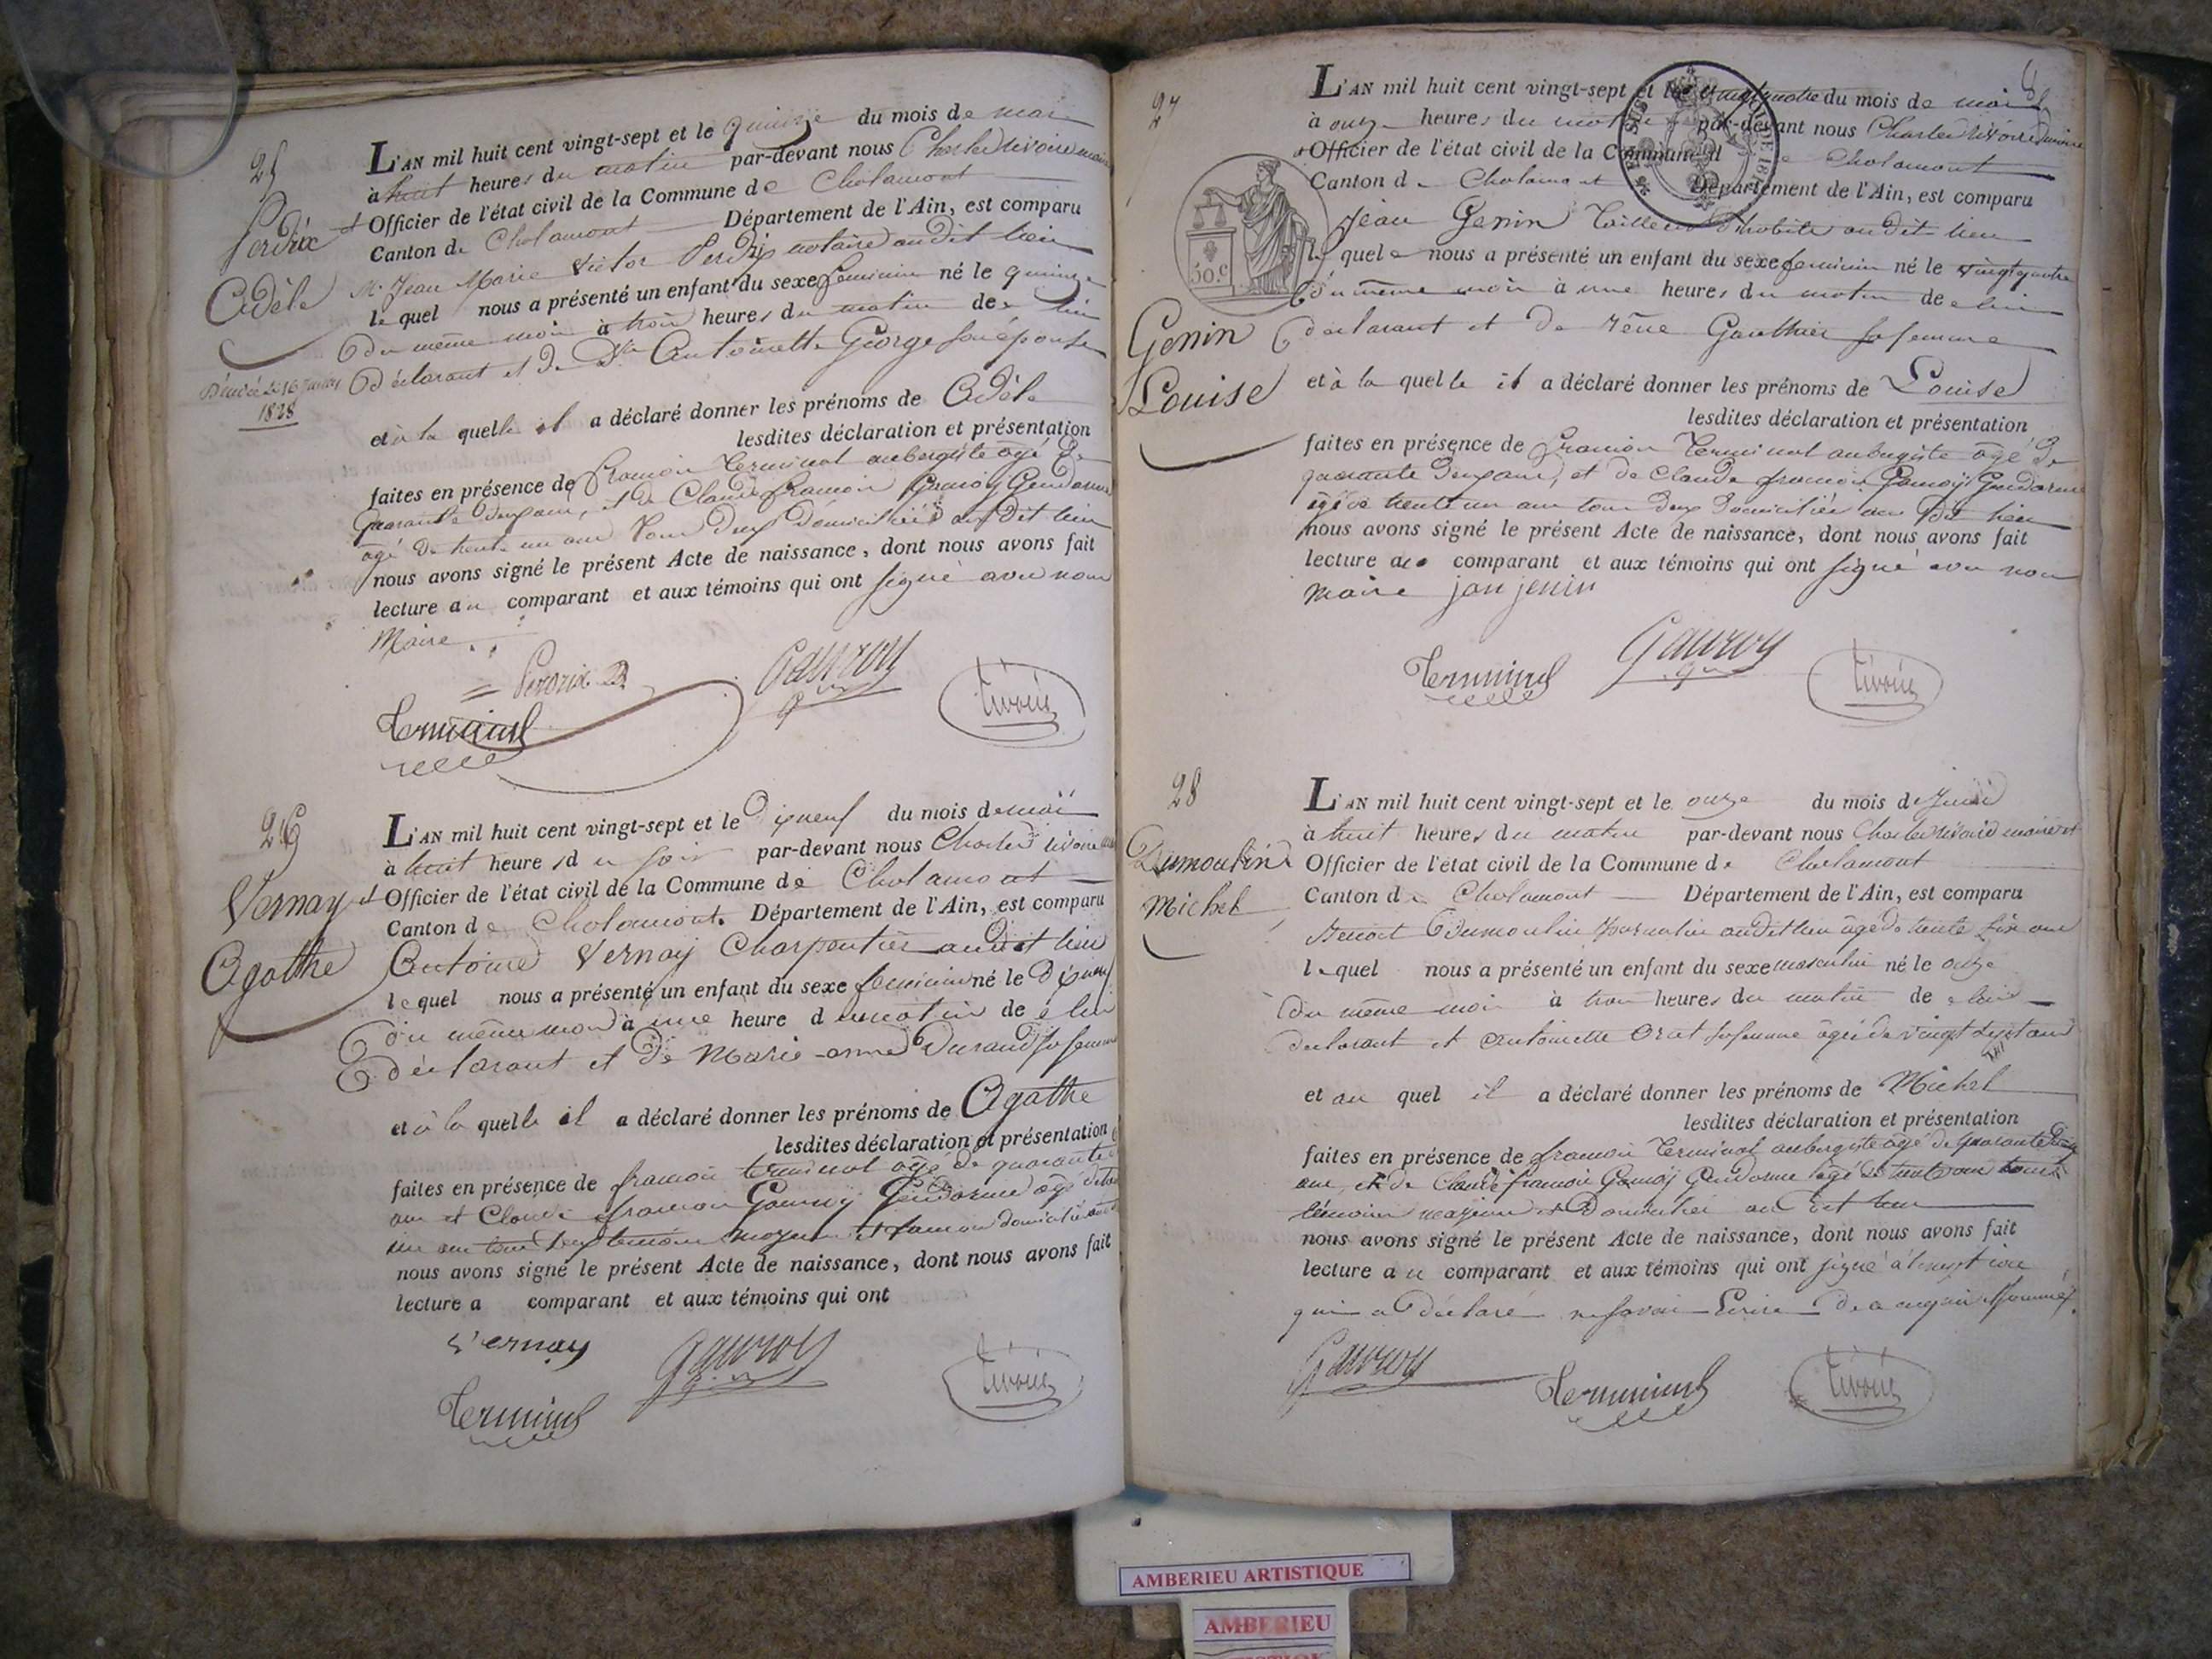 25
Perdrix
Adèle
Décédée le 16 janvier
1828
L'AN mil huit cent vingt-sept et le quinze du mois de mai
à huit heures du matin par-devant nous Charles livoire maire
et Officier de l'état civil de la Commune de Chalamont
Canton de Chalamont Département de l'Ain, est comparu
Mr Jean Marie Victor Perdrix notaire audit lieu
lequel nous a présenté un enfant du sexe feminin né le quinze
du même mois à trois heures du matin de lui
déclarant et de De Antoinette George son épouse
et à la quelle il a déclaré donner les prénoms de Adèle
lesdites déclaration et présentation
faites en présence de françois Terminal aubergiste agé de
quarante deux ans, et de Claude françois Gauroy Gendarme
agé de trente un ans tous deux domiciliés audit lieu
nous avons signé le présent Acte de naissance, dont nous avons fait
lecture au comparant et aux témoins qui ont signé avec nous
Maire.
Perdrix
Gauroy
Terminal
livoire
26
Vernay
Agathe
L'AN mil huit cent vingt-sept et le dixneuf du mois de mai
à huit heures du soir par-devant nous Charles livoire
et Officier de l'état civil de la Commune de Chalamont
Canton de Chalamont. Département de l'Ain, est comparu
Antoine Vernay Charpentier audit lieu
lequel nous a présenté un enfant du sexe feminin né le dixneuf
du même mois à une heure du matin de lui
déclarant et de Marie-anne Durand sa femme
et à la quelle il a déclaré donner les prénoms de Agathe
lesdites déclaration et présentation
faites en présence de françois terminal agé de quarante
ans et Claude françois Gauroy Gendarme agé de trente
un ans tous deux temoins domicilié
nous avons signé le présent Acte de naissance, dont nous avons fait
lecture a comparant et aux témoins qui ont
Vernay
Gauroy
Terminal
livoire
27
Genin
Louise
30 c
L'AN mil huit cent vingt-sept et le vingtquatre du mois de mai
à onze heures du matin par-devant nous Charles livoire maire
et Officier de l'état civil de la Commune de Chalamont
Canton de Chalamont Département de l'Ain, est comparu
Jean Genin Tailleur d'habits audit lieu
lequel nous a présenté un enfant du sexe feminin né le vingtquatre
du même mois à une heures du matin de lui
déclarant et de Gauthier sa femme
et à la quelle il a déclaré donner les prénoms de Louise
lesdites déclaration et présentation
faites en présence de françois Terminal aubergiste agé de
quarante deux ans, et de Claude françois Gauroy Gendarme
agé de trente un ans tous deux domiciliés au dit lieu
nous avons signé le présent Acte de naissance, dont nous avons fait
lecture au comparant et aux témoins qui ont signé avec nous
maire jan jenin
Terminal
Gauroy
livoire
28
Dumoulin
Michel
L'AN mil huit cent vingt-sept et le onze du mois de juin
à huit heures du matin par-devant nous Charles livoire maire et
Officier de l'état civil de la Commune de Chalamont
Canton de Chalamont Département de l'Ain, est comparu
Benoit Dumoulin Journalier audit lieu agé de trente six ans
lequel nous a présenté un enfant du sexe masculin né le onze
du même mois à trois heures du matin de lui
declarant et antoinette Orat sa femme agée de vingt sept ans
et au quel il a déclaré donner les prénoms de Michel
lesdites déclaration et présentation
faites en présence de françois Terminal aubergiste agé de quarante deux
ans, et de Claude françois Gauroy Gendarme agé de trente ans tous
témoins majeurs et Domiciliés au dit lieu
nous avons signé le présent Acte de naissance, dont nous avons fait
lecture au comparant et aux témoins qui ont signé
qui a déclaré ne savoir Ecrire de ce
Gauroy
Terminal
livoire
AMBERIEU ARTISTIQUE
AMBERIEU